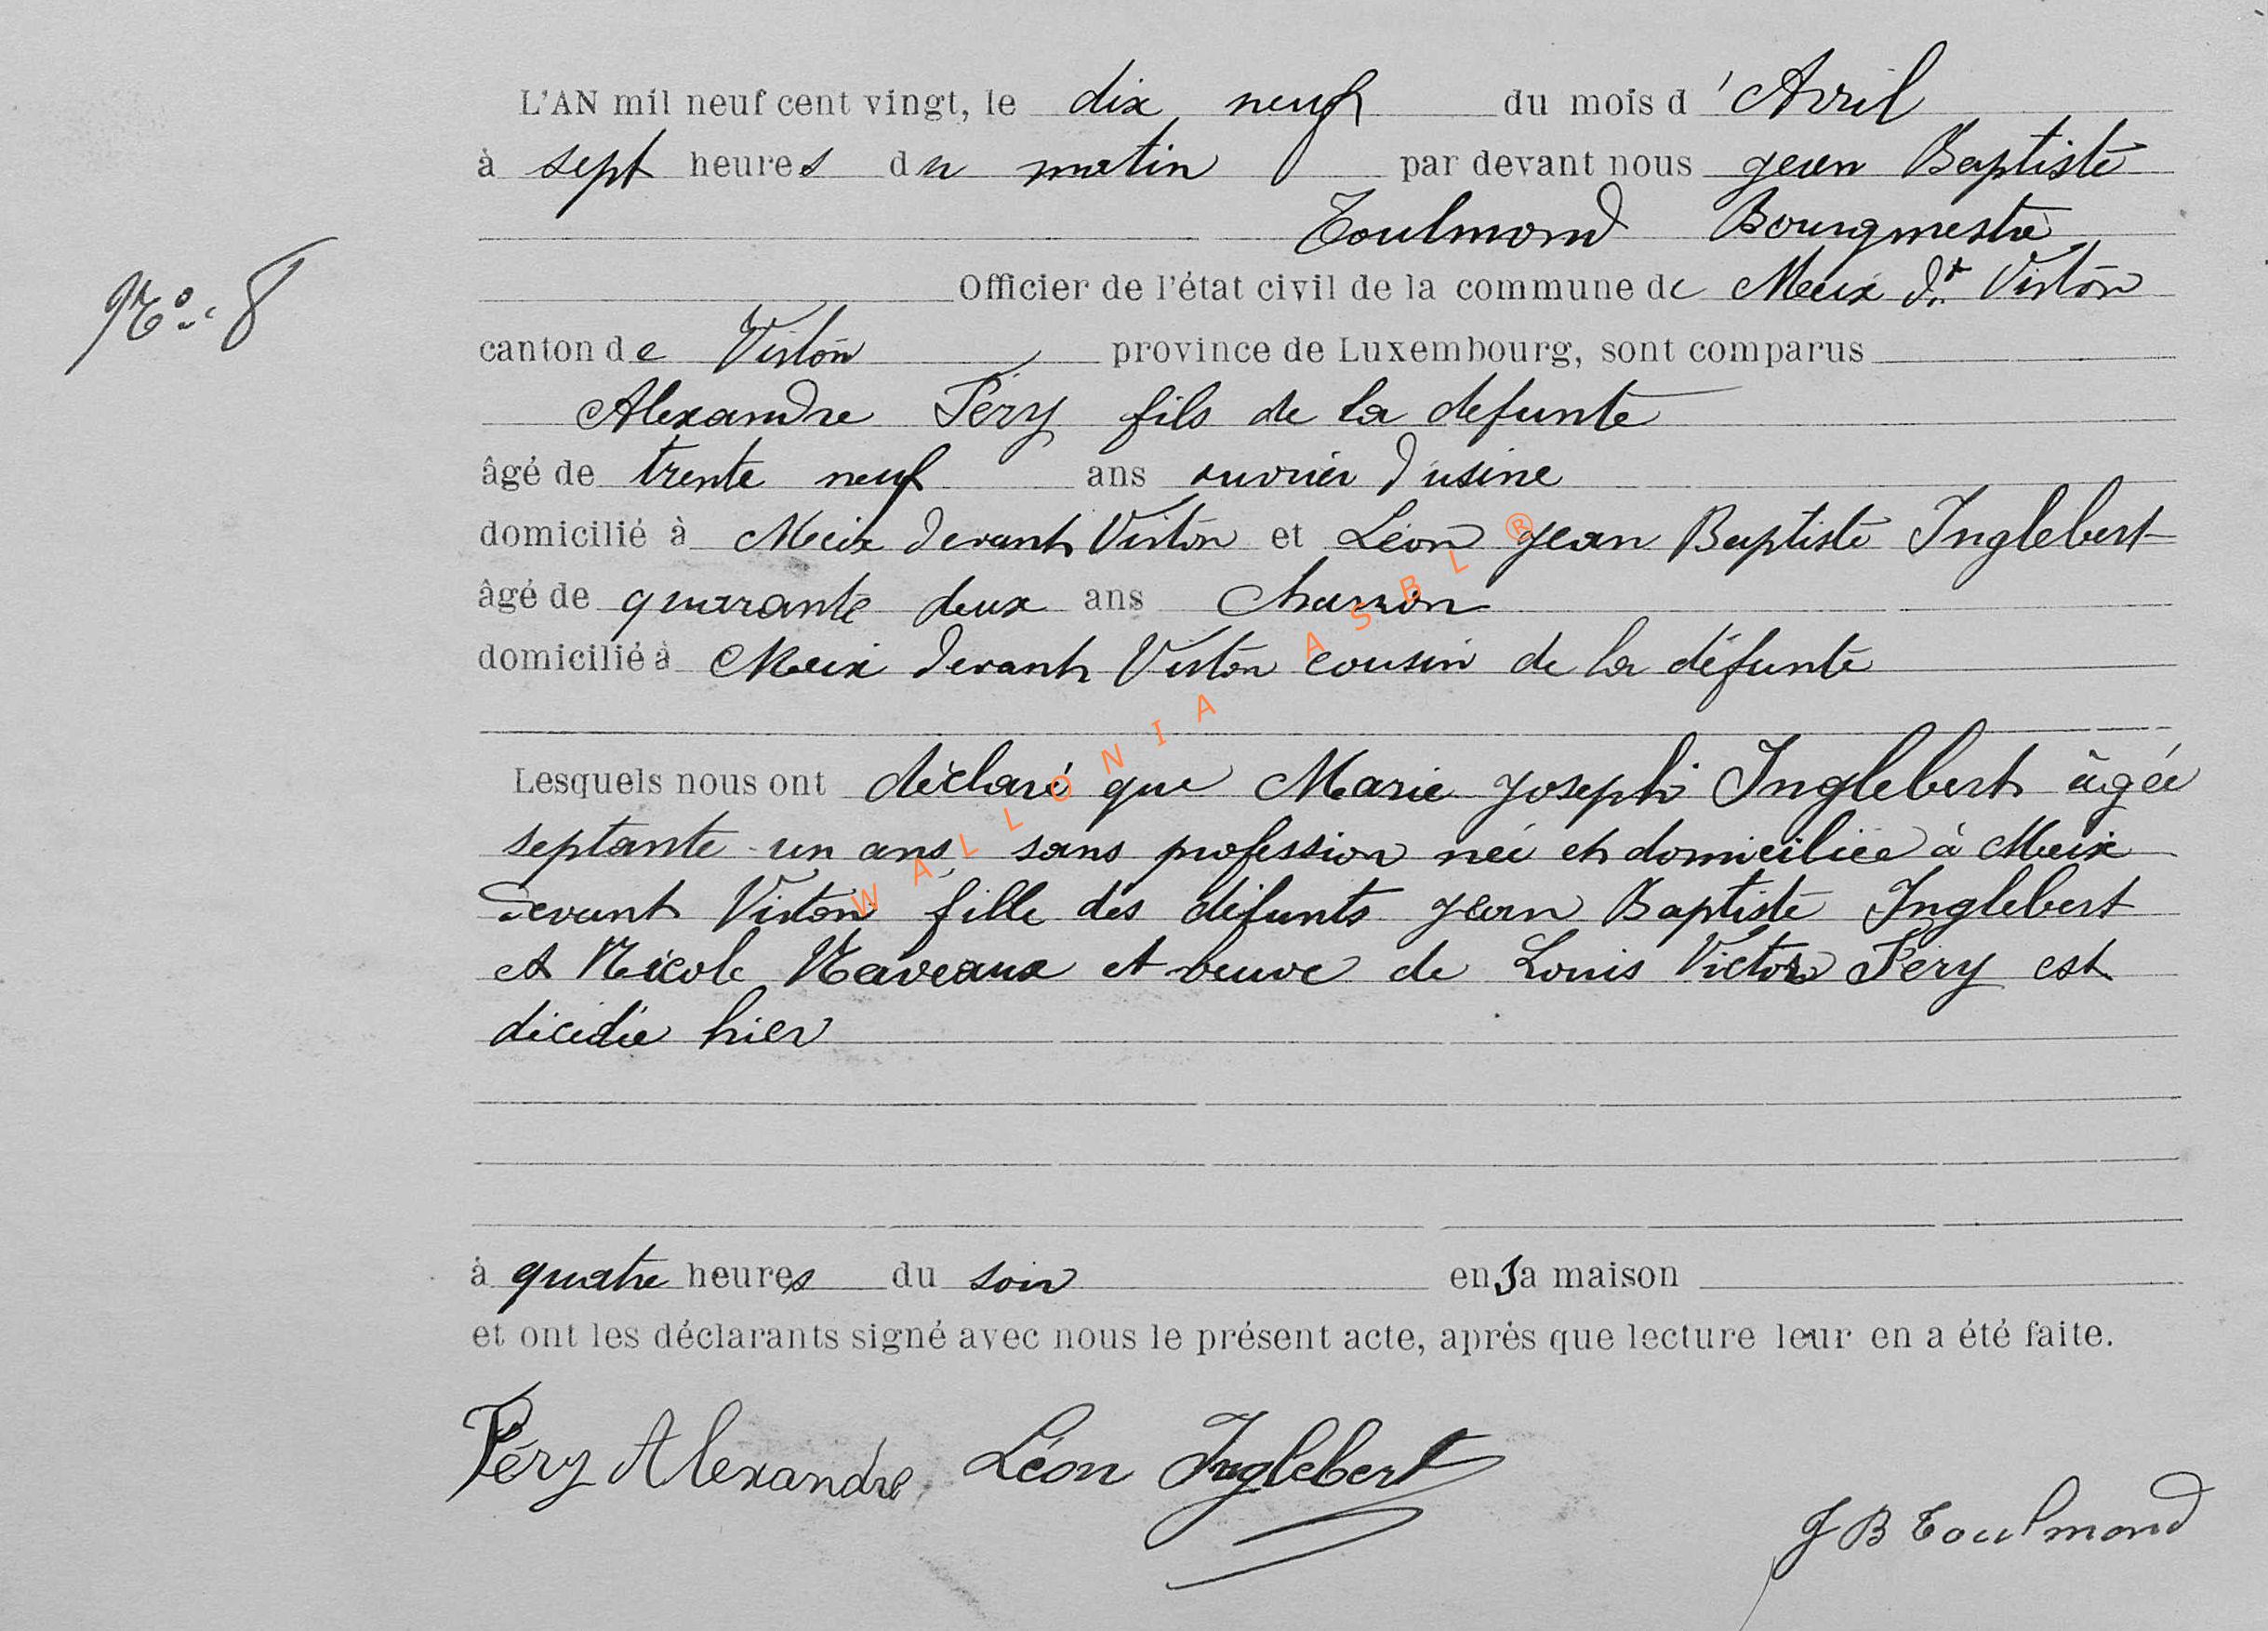 L'AN mil neuf cent vingt, le dix neuf du mois d'Avril
à sept heures du matin par devant nous Jean Baptiste
Toulmond Bourgmestre
Officier de l'état civil de la commune de Meix dt Virton
N°. 8
canton de Virton, province de Luxembourg, sont comparus
Alexandre Péry fils de la defunte
âgé de trente neuf ans ouvrier d'usine
domicilié à Meix devant Virton et Léon Jean Baptiste Inglebert
âgé de quarante deux ans Charron
domicilié à Meix devant Virton cousin de la défunte
Lesquels nous ont déclaré que Marie Joseph Inglebert âgée
septante un ans, sans profession née et domiciliée à Meix
devant Virton fille des défunts Jean Baptiste Inglebert
et Nicole Naveaux et veuve de Louis Victor Péry est
décédée hier
à quatre heures du soir en sa maison
et ont les déclarants signé avec nous le présent acte, après que lecture leur en a été faite.
Péry Alexandre, Léon Inglebert
J B Toulmond
WALLONIA ASBL ®